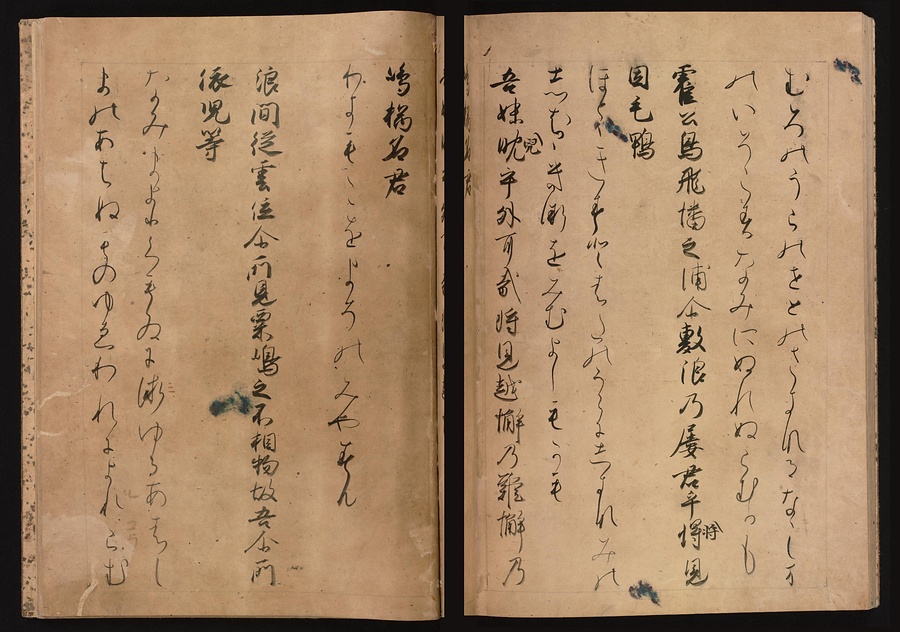 むろのうらのせとのさきなるなゝしま
のいそこすなみにぬれぬらむかも
霍公鳥飛幡之浦尓敷浪乃屡君乎将見
因毛鴨
ほとゝきすとはたのうらにしきなみの
しはゝゝ君をみむよしもかも
吾妹兒乎外耳哉将見越懈乃難懈乃
嶋楢名君
わきもこをよそのみやみん
浪間従雲位尓所見粟嶋之不相物故吾尓所
依兒等
なみまよりくもゐにみゆるあはし
まのあはぬものゆゑわれによれらむ